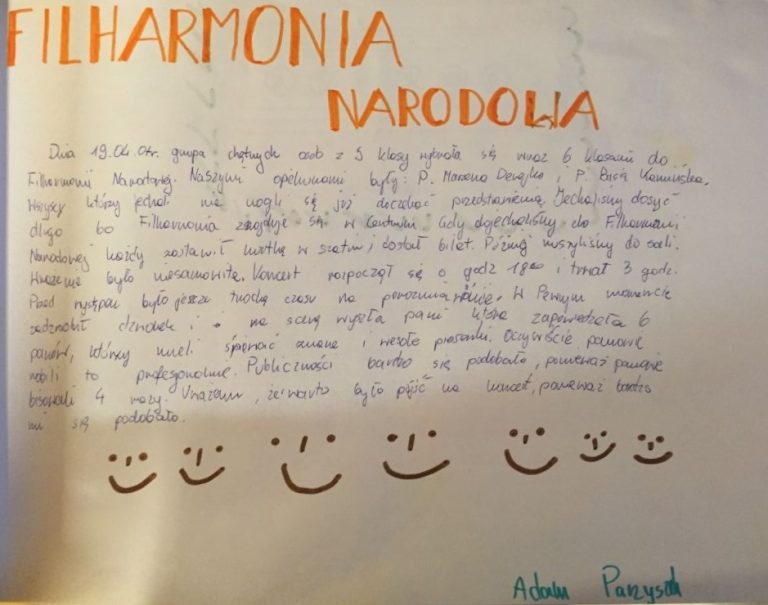 FILHARMONIA
NARODOWA
Dnia 19.04.04r. grupa chętnych osób z 5 klasy wybrała się wraz 6 klasami do
Filharmonii Narodowej. Naszymi opiekunami były: P. Marzena i P. Basia Kamińska.
Wszyscy którzy jechali nie mogli się już doczekać przedstawienia. Jechaliśmy dosyć
długo bo Filharmonia znajduje się w Centrum. Gdy dojechaliśmy do Filharmonii
Narodowej każdy zostawił kurtkę w szatni i dostał bilet. Później ruszyliśmy do sali.
Wrażenie było niesamowite. Koncert rozpoczął się o godz 18⁰⁰ i trwał 3 godz.
Przed występem było jeszcze trochę czasu na porozmawianie. W Pewnym momencie
zadzwonił dzwonek i na scenę wyszła pani która zapowiedziała 6
panów, którzy mieli śpiewać znane i wesołe piosenki. Oczywiście, panowie
robili to profesjonalnie. Publiczności bardzo się podobało, ponieważ panowie
bisowali 4 razy. Uważam, że warto było pójść na koncert, ponieważ bardzo
mi się podobało.
Adam Parzyszek